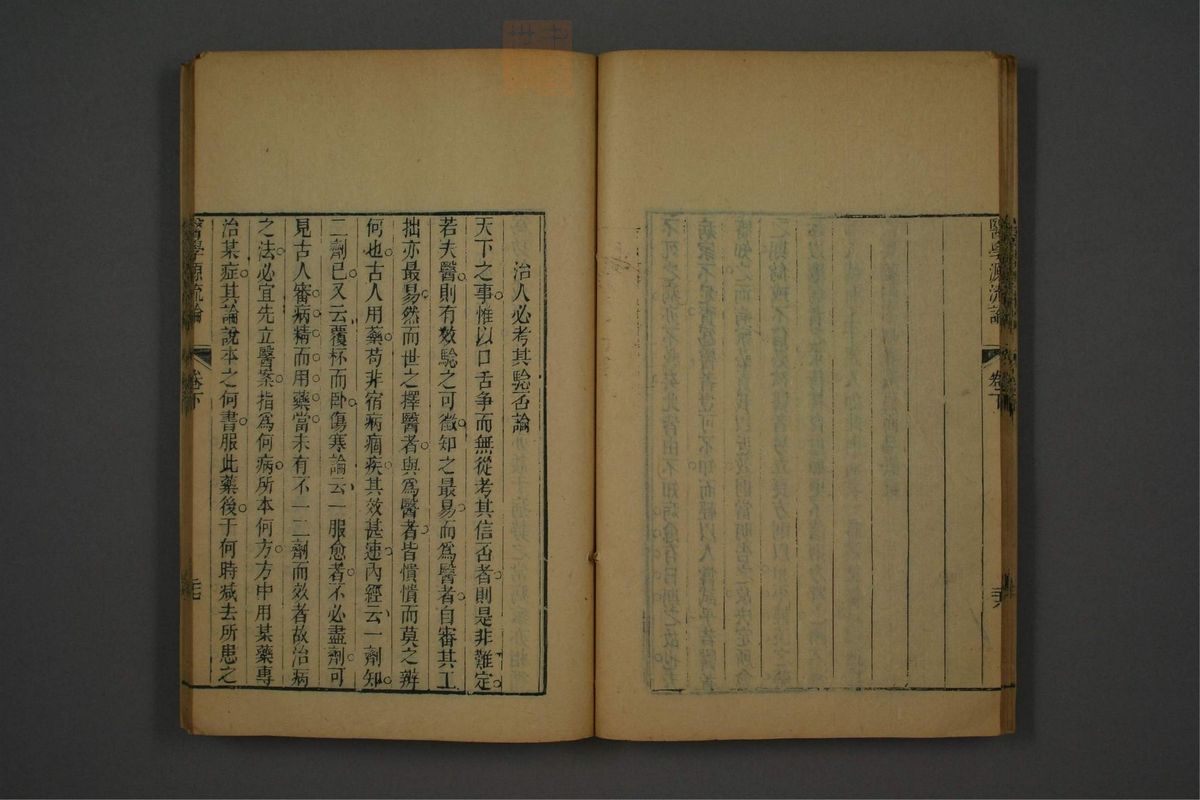 醫學源流論
卷下
治人必考其驗否論
天下之事惟以口舌爭而無從考其信否者則是非難定
若夫醫則有效驗之可徵知之最易而爲醫者自審其工
拙亦最易然而世之擇醫者與爲醫者皆憒憒而莫之辨
何也古人用藥苟非宿病痼疾其效甚速內經云一劑知
二劑已又云覆杯而臥傷寒論云一服愈者不必盡劑可
見古人審病精而用藥當未有不一二劑而效者故治病
之法必宜先立醫案指爲何病所本何方方中用某藥專
治某症其論說本之何書服此藥後于何時減去所患之
醫學源流論
卷下